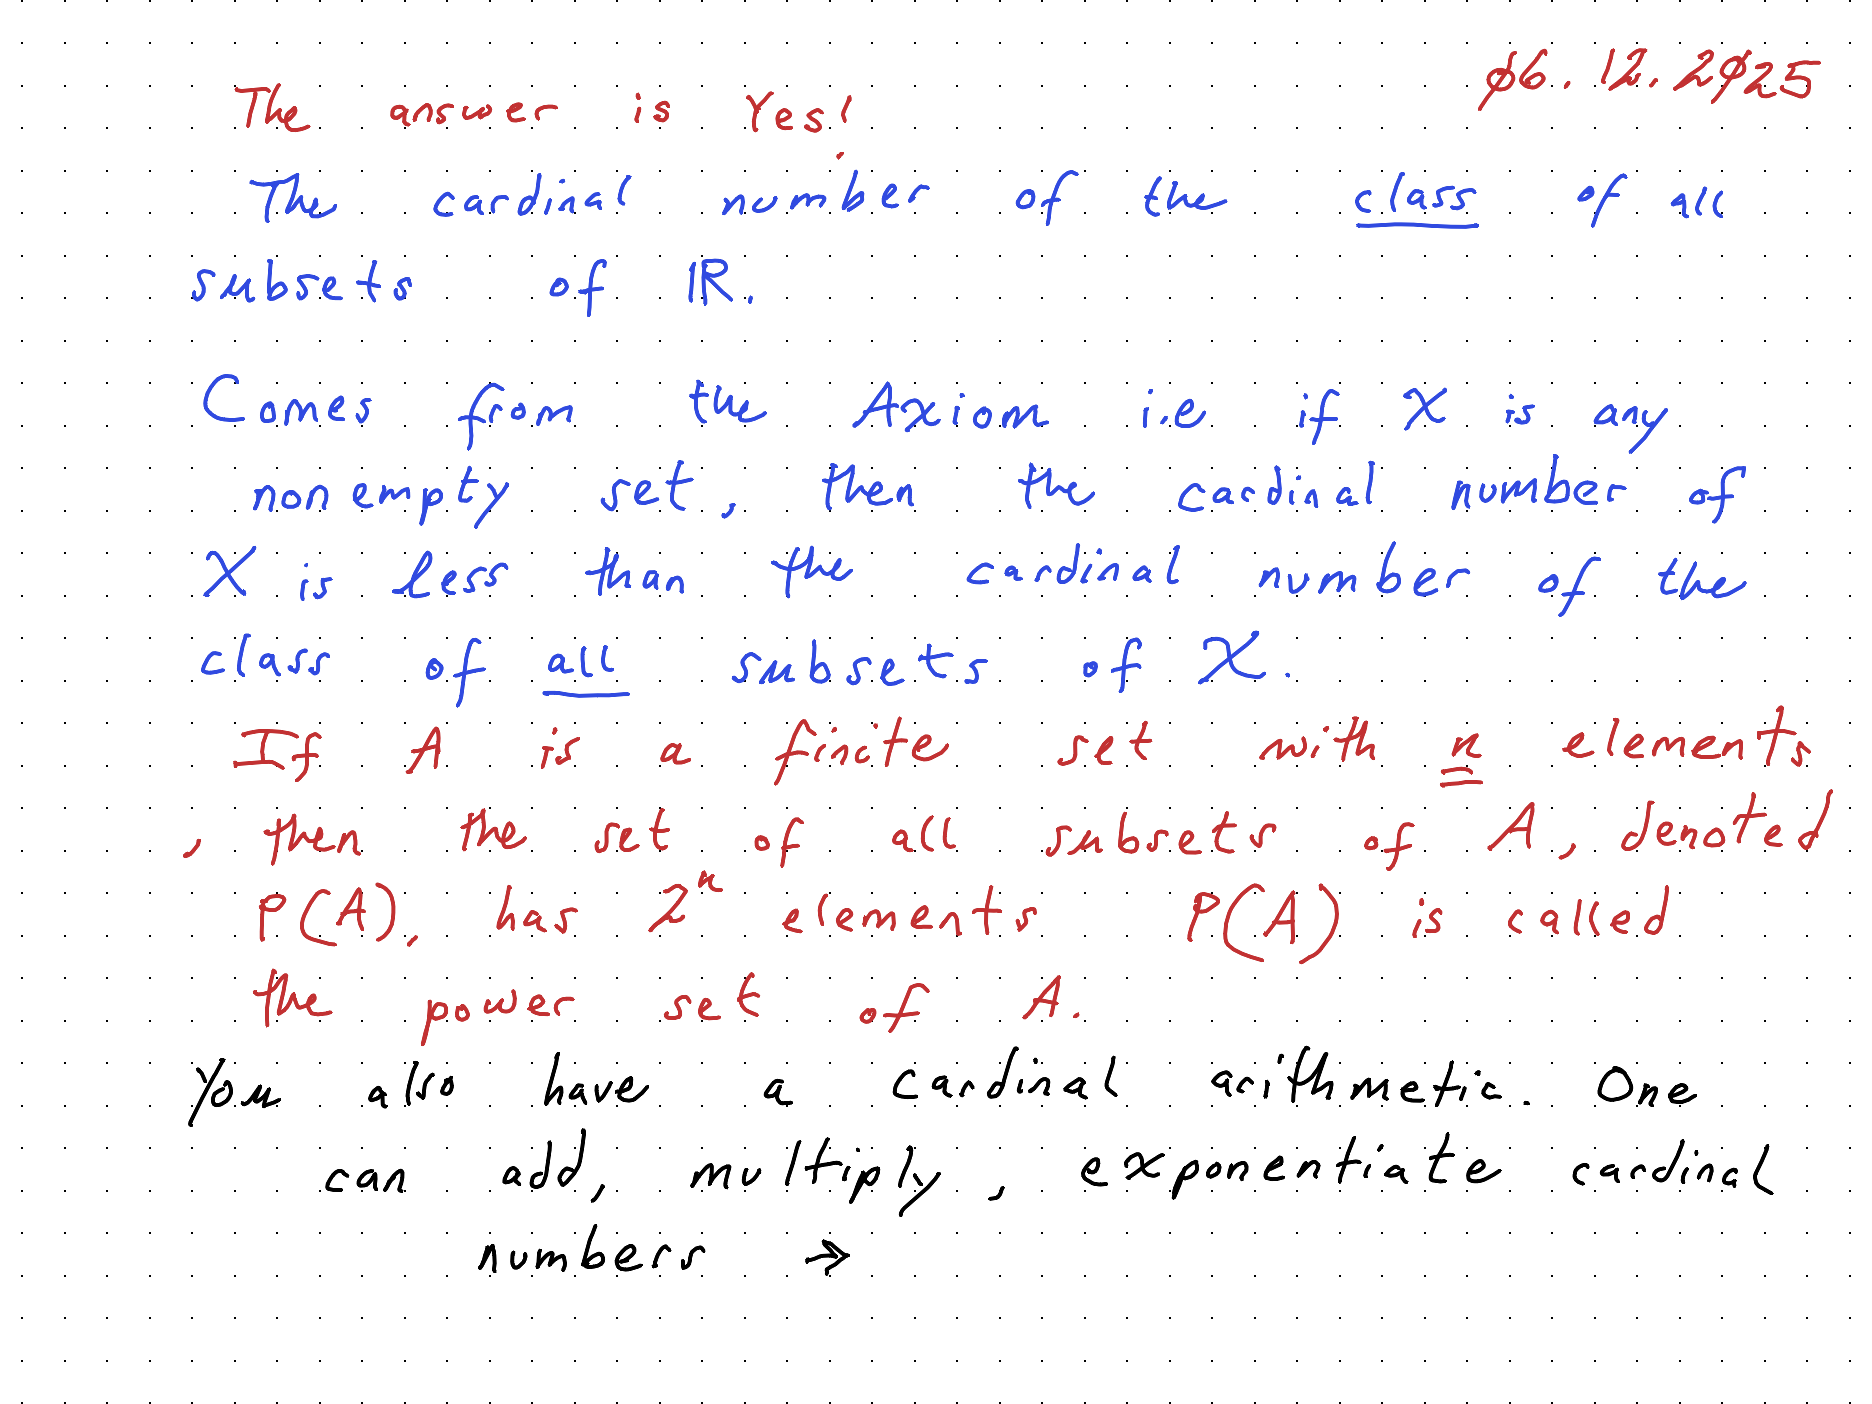 06.12.2025
The answer is Yes!
The cardinal number of the class of all
subsets of ℝ.
Comes from the Axiom i.e if X is any
nonempty set, then the cardinal number of
X is less than the cardinal number of the
class of all subsets of X.
If A is a finite set with n elements
, then the set of all subsets of A, denoted
P(A), has 2ⁿ elements P(A) is called
the power set of A.
You also have a cardinal arithmetic. One
can add, multiply, exponentiate cardinal
numbers →